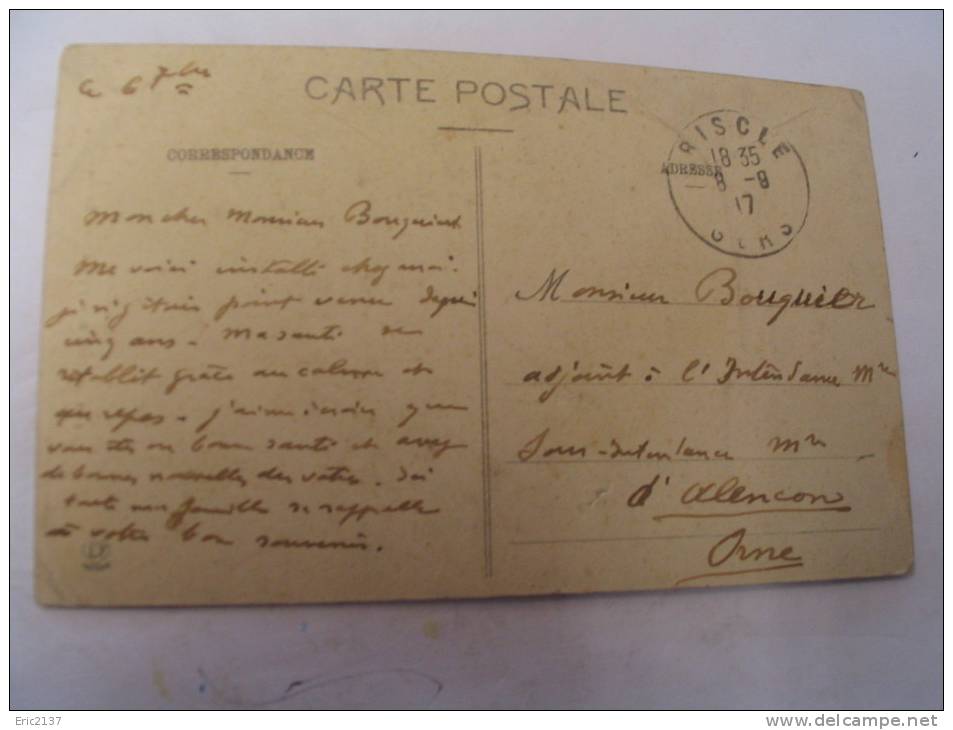 Le 6 7bre
CARTE POSTALE
CORRESPONDANCE
Mon cher Monsieur Bouquier
Me voici installé chez moi.
je n'y étais point venu depuis
cinq ans. Ma santé se
rétablit grâce au calme et
au repos. J'aimerais que
vous êtes en bonne santé et avez
de bonnes nouvelles des vôtres. Ici
toute ma famille se rappelle
à votre bon souvenir.
ADRESSE
RISCLE
18 35
8 -9
17
GERS
Monsieur Bouquier
adjoint à l'Intendance Mre
Sous-Intendance Mre
d'Alencon
Orne
Eric2137
www.delcampe.net